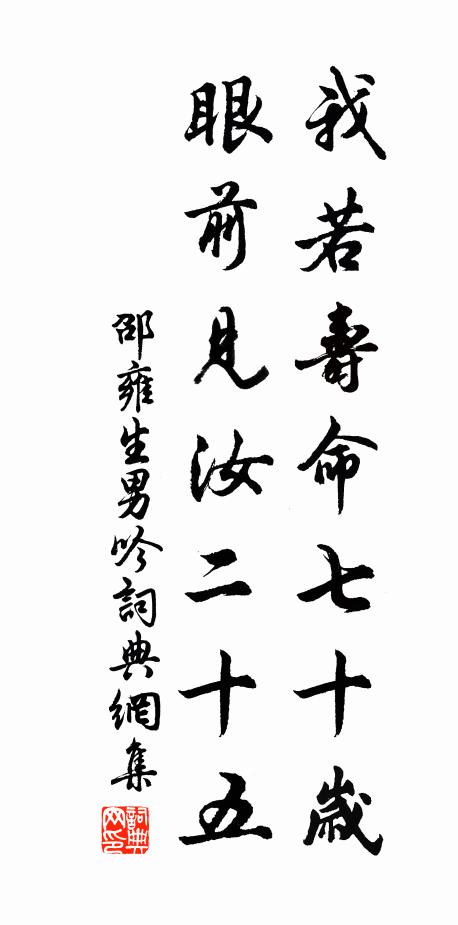 我若壽命七十歲
眼前見汝二十五
邵雍生男吟詞典網集
詞典
网印